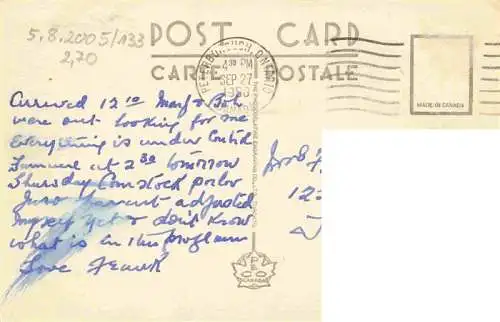 5.8.2005/133
2,70
POST CARD
CARTE POSTALE
PETERBOROUGH, ONTARIO
4 30 PM
SEP 27
MADE IN CANADA
Arrived 12 10 &
were out looking for me
Everything is under Control
Funeral at 2 30 tomorrow
Thursday Comstock parlor
Just haven't adjusted
myself yet & don't know
what is on the program
Love Frank
PECO
CANADA